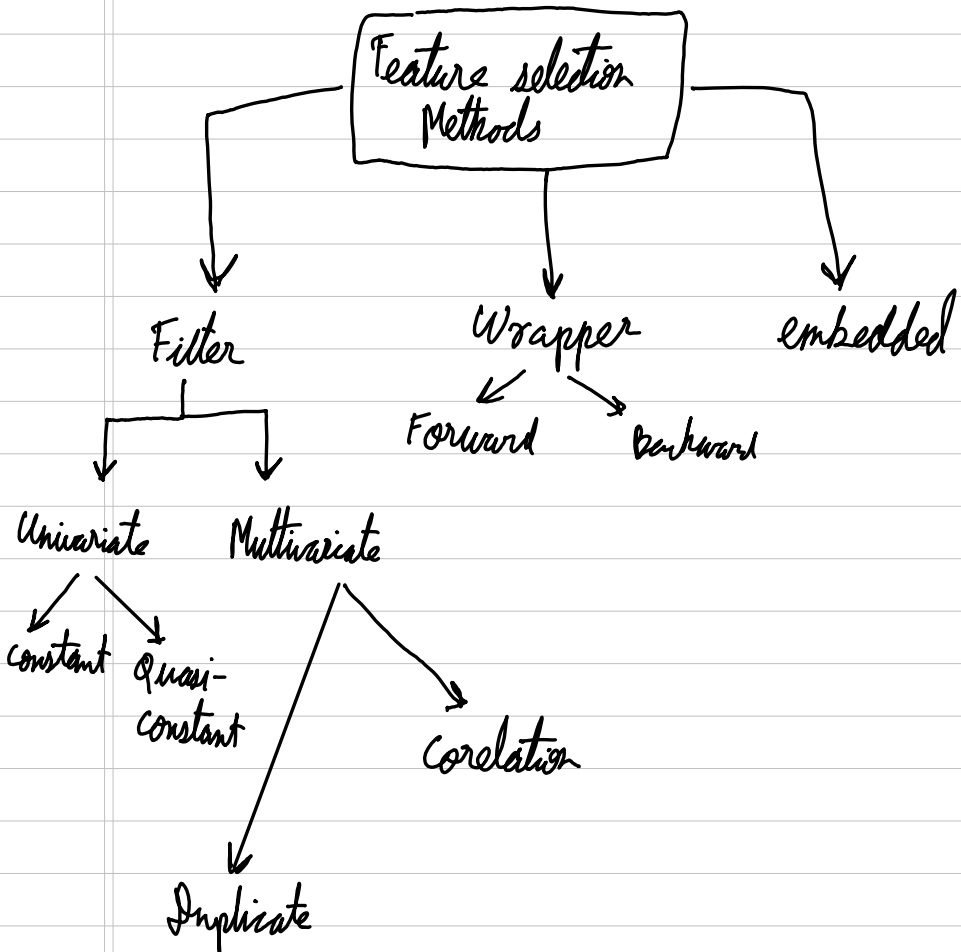 Feature selection
Methods
Filter
Wrapper
embedded
Forward
Backward
Univariate
Multivariate
constant
Quasi-
constant
Corelation
Duplicate